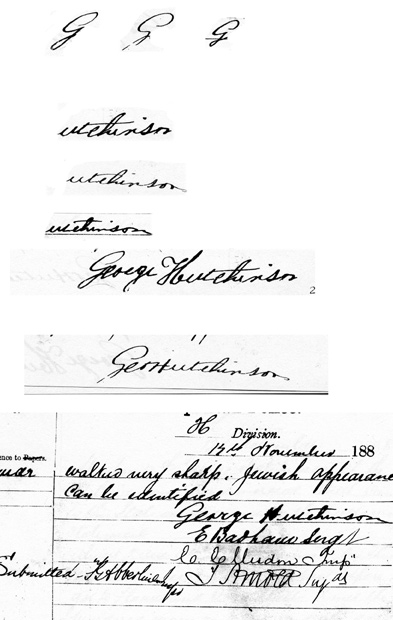 G G G
utchinson
utchinson
utchinson
George Hutchinson
2
Geo Hutchinson
H Division.
12th November 188
ence to Papers.
walked very sharp. Jewish appearance
can be identified
George Hutchinson
E Badham Sergt
Submitted F G Abberline Insp
T Arnold Supd